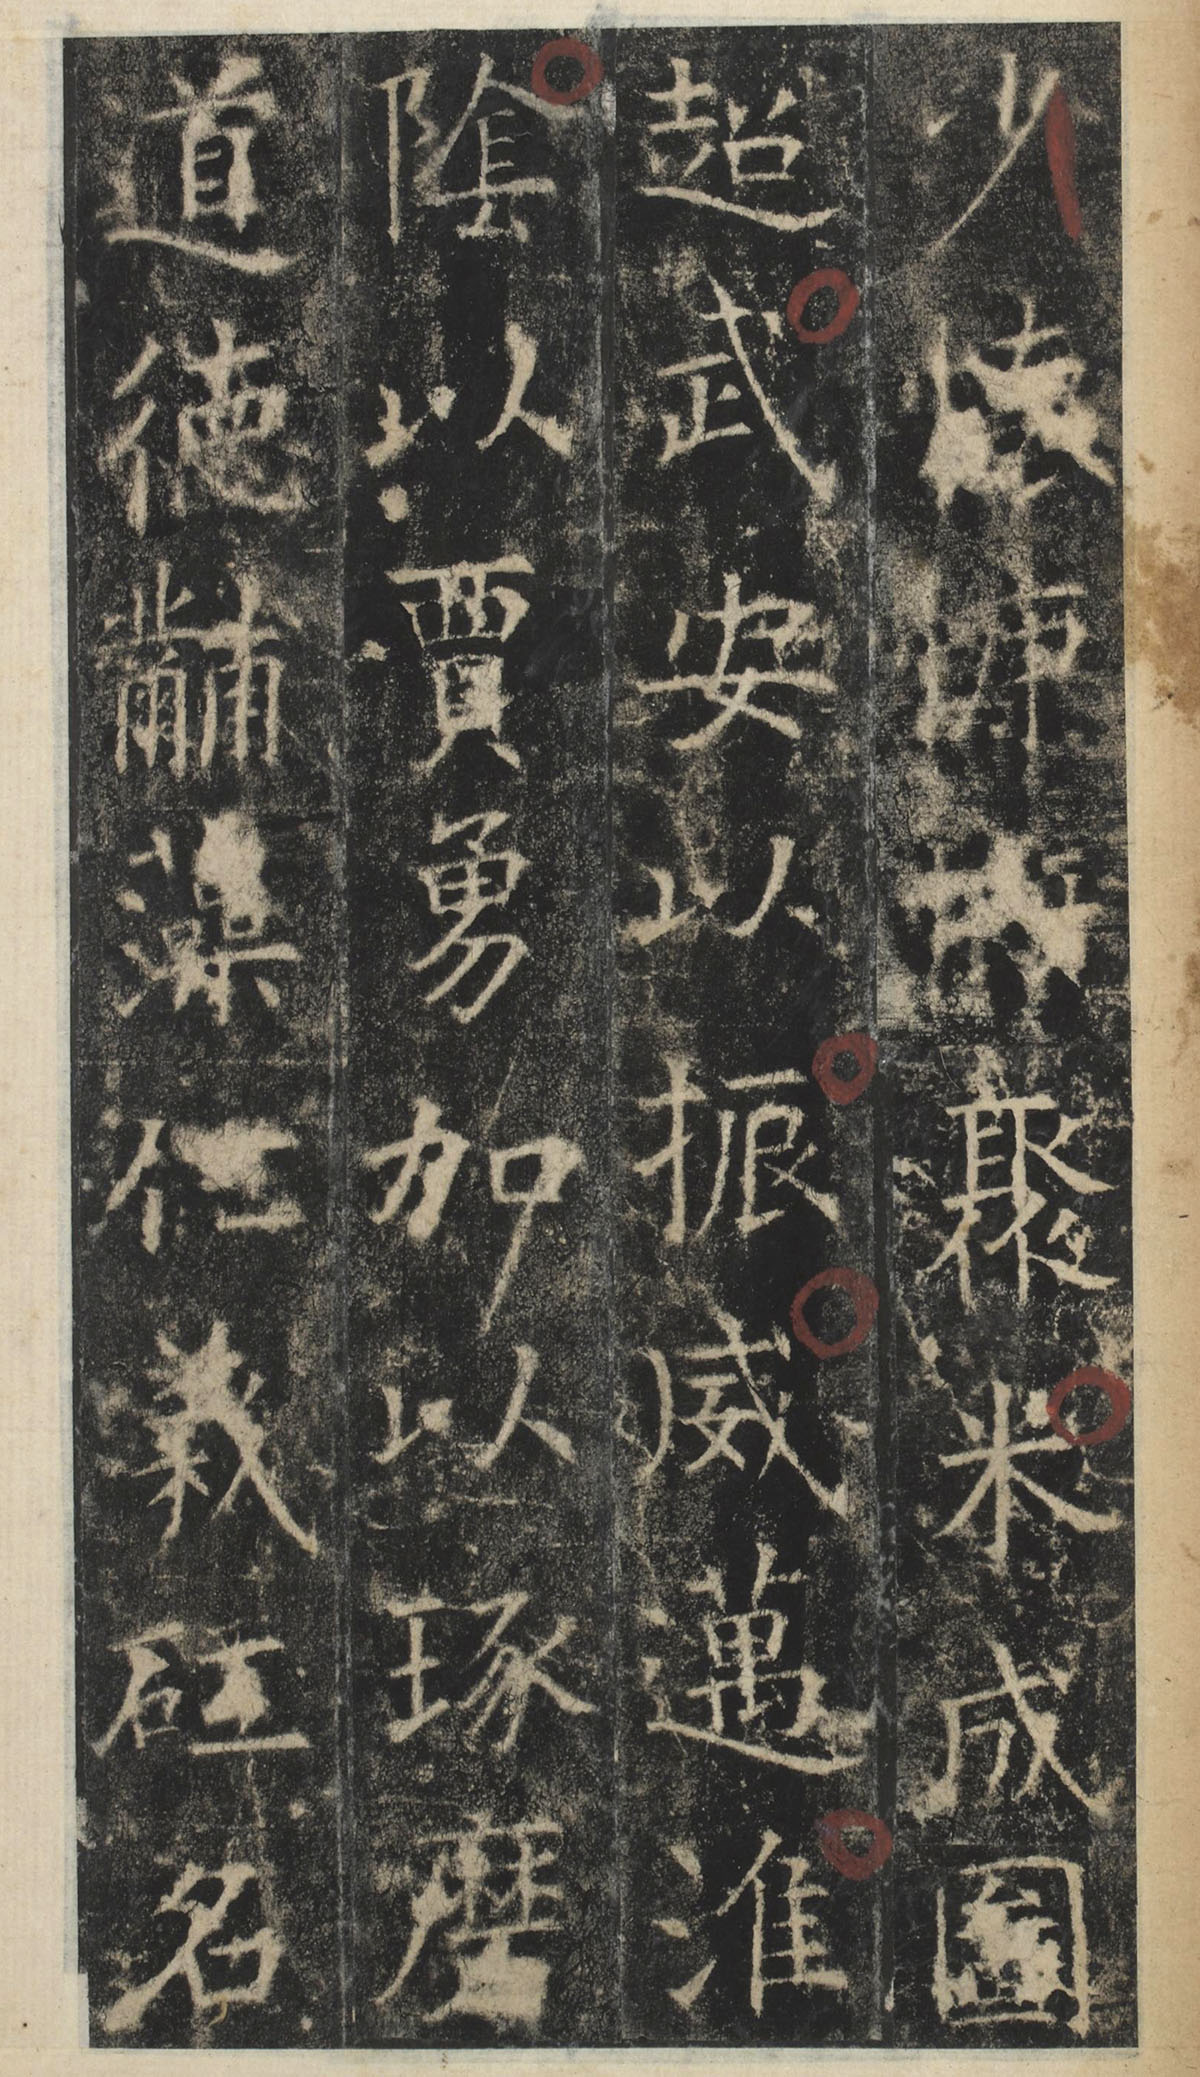 少聚米成圖
超武安以振威邁淮
陰以賈勇加以琢磨
道德黼藻仁義名